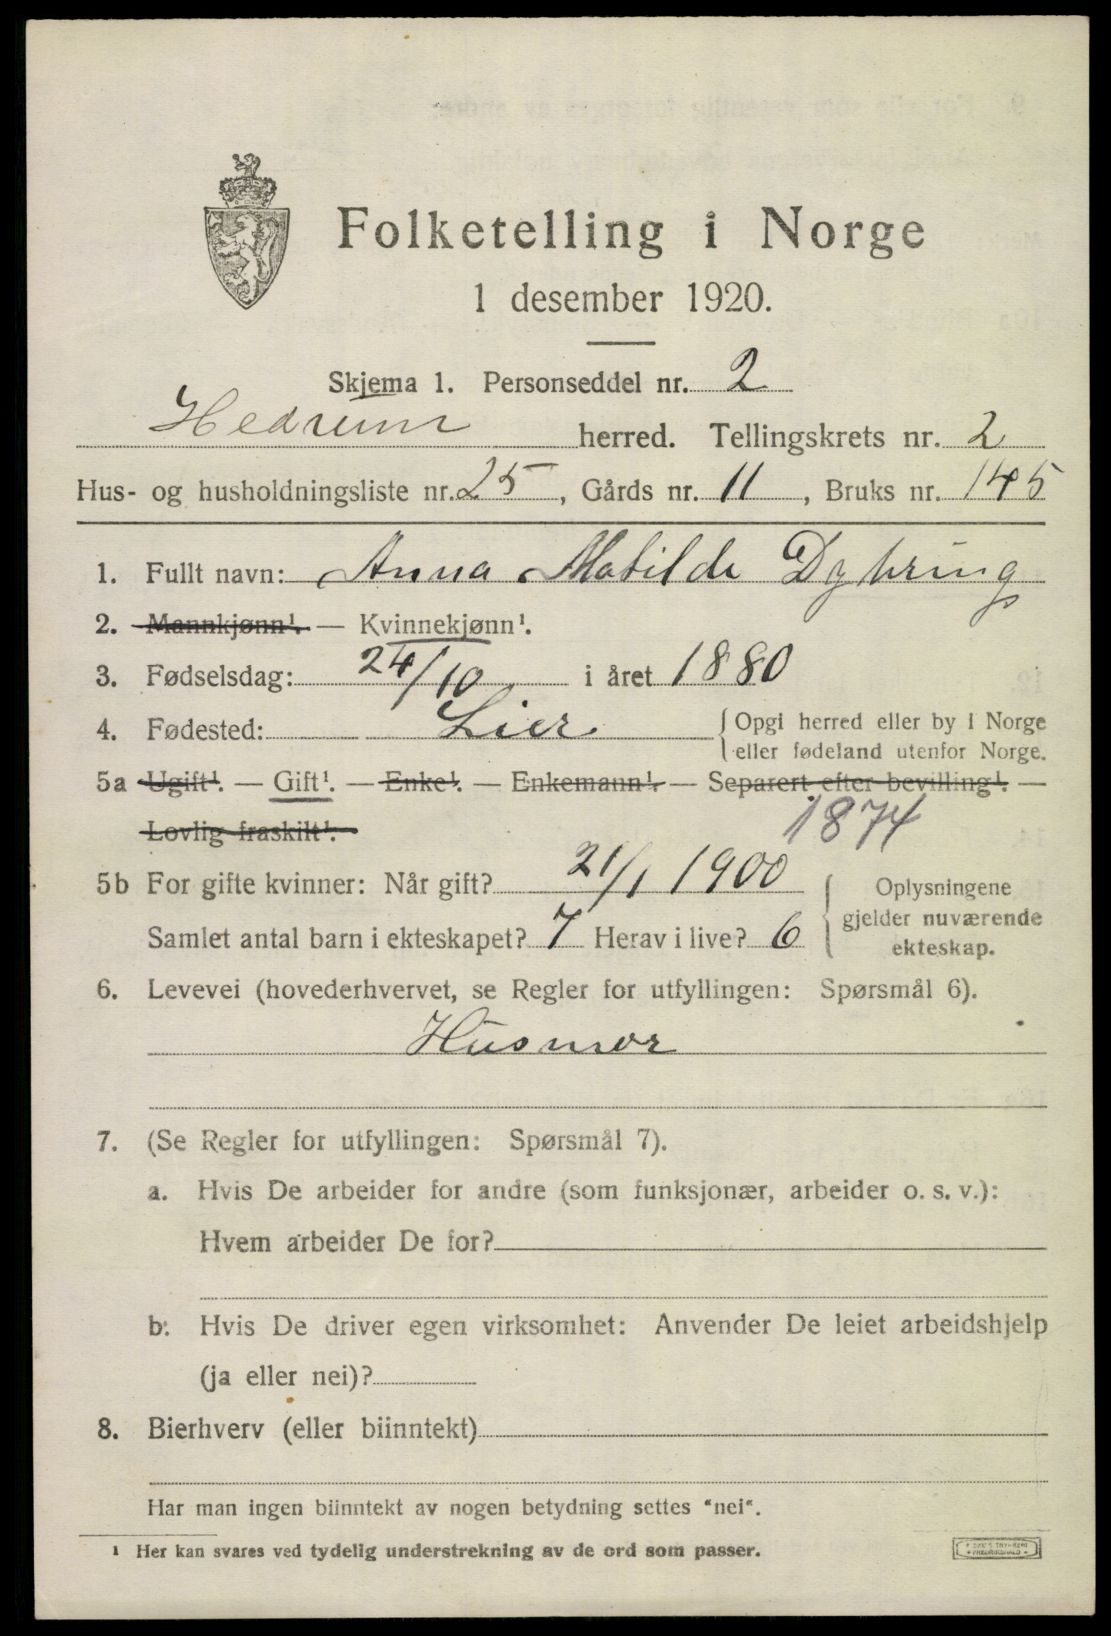 Folketelling i Norge
1 desember 1920.
Skjema 1. Personseddel nr. 2
Hedrum herred. Tellingskrets nr. 2
Hus- og husholdningsliste nr. 25, Gårds nr. 11, Bruks nr. 145
1. Fullt navn: Anna Matilde Dyhring
2. Mannkjønn¹. — Kvinnekjønn¹.
3. Fødselsdag: 24/10 i året 1880
4. Fødested: Lier {Opgi herred eller by i Norge
eller fødeland utenfor Norge.
5a Ugift¹. — Gift¹. — Enke¹. — Enkemann¹. — Separert efter bevilling¹. —
Lovlig fraskilt¹. 1874
5b For gifte kvinner: Når gift? 21/1 1900 { Oplysningene
gjelder nuværende
Samlet antal barn i ekteskapet? 7 Herav i live? 6
ekteskap.
6. Levevei (hovederhvervet, se Regler for utfyllingen: Spørsmål 6).
Husmor
7. (Se Regler for utfyllingen: Spørsmål 7).
a. Hvis De arbeider for andre (som funksjonær, arbeider o. s. v.):
Hvem arbeider De for?
b. Hvis De driver egen virksomhet: Anvender De leiet arbeidshjelp
(ja eller nei)?
8. Bierhverv (eller biinntekt)
Har man ingen biinntekt av nogen betydning settes "nei".
¹ Her kan svares ved tydelig understrekning av de ord som passer.